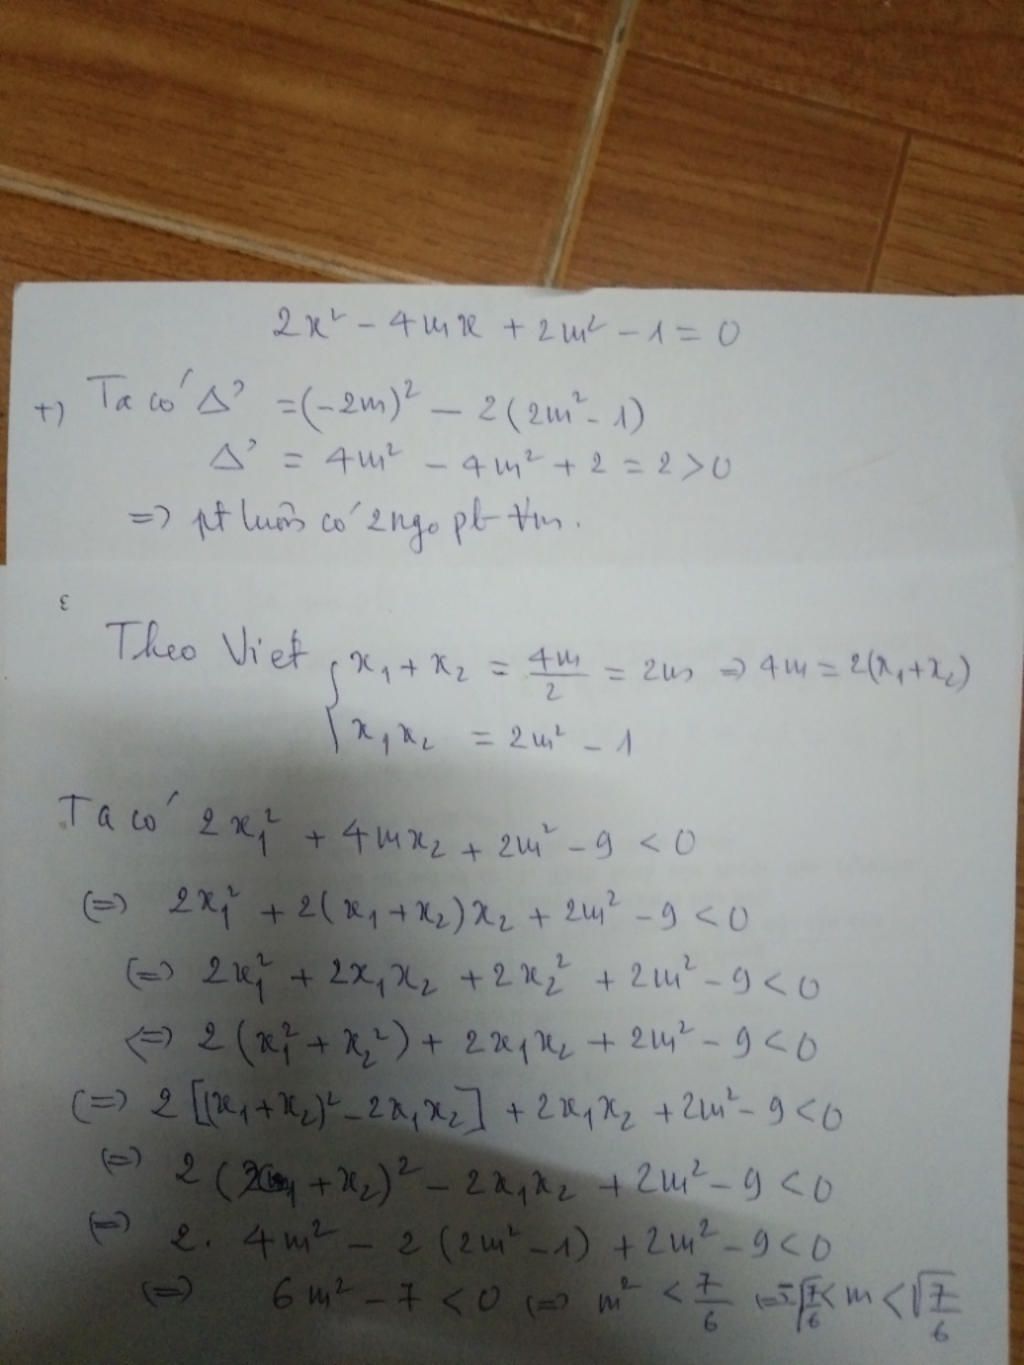 2x² - 4mx + 2m² - 1 = 0
+) Ta có Δ' = (-2m)² - 2(2m² - 1)
Δ' = 4m² - 4m² + 2 = 2 > 0
=> pt luôn có 2 ngo pb ∀m.
3
Theo Viet { x₁ + x₂ = 4m/2 = 2m => 4m = 2(x₁+x₂)
x₁x₂ = 2m² - 1
Ta có 2x₁² + 4mx₂ + 2m² - 9 < 0
(=) 2x₁² + 2(x₁+x₂)x₂ + 2m² - 9 < 0
(=) 2x₁² + 2x₁x₂ + 2x₂² + 2m² - 9 < 0
<=> 2(x₁² + x₂²) + 2x₁x₂ + 2m² - 9 < 0
(=) 2[(x₁+x₂)² - 2x₁x₂] + 2x₁x₂ + 2m² - 9 < 0
(=) 2(x₁ + x₂)² - 2x₁x₂ + 2m² - 9 < 0
(=) 2. 4m² - 2(2m² - 1) + 2m² - 9 < 0
(=) 6m² - 7 < 0 (=) m² < 7/6 (=) -√7/6 < m < √7/6